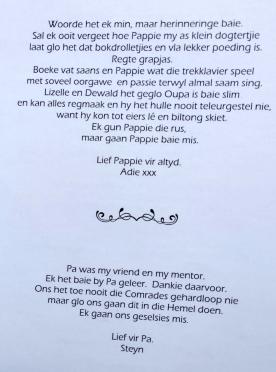 Woorde het ek min, maar herinneringe baie.
Sal ek ooit vergeet hoe Pappie my as klein dogtertjie
laat glo het dat bokdrolletjies en vla lekker poeding is.
Regte grapjas.
Boeke vat saans en Pappie wat die trekklavier speel
met soveel oorgawe en passie terwyl almal saam sing.
Lizelle en Dewald het geglo Oupa is baie slim
en kan alles regmaak en hy het hulle nooit teleurgestel nie,
want hy kon tot eiers lé en biltong skiet.
Ek gun Pappie die rus,
maar gaan Pappie baie mis.
Lief Pappie vir altyd.
Adie xxx
Pa was my vriend en my mentor.
Ek het baie by Pa geleer. Dankie daarvoor.
Ons het toe nooit die Comrades gehardloop nie
maar glo ons gaan dit in die Hemel doen.
Ek gaan ons geselsies mis.
Lief vir Pa.
Steyn